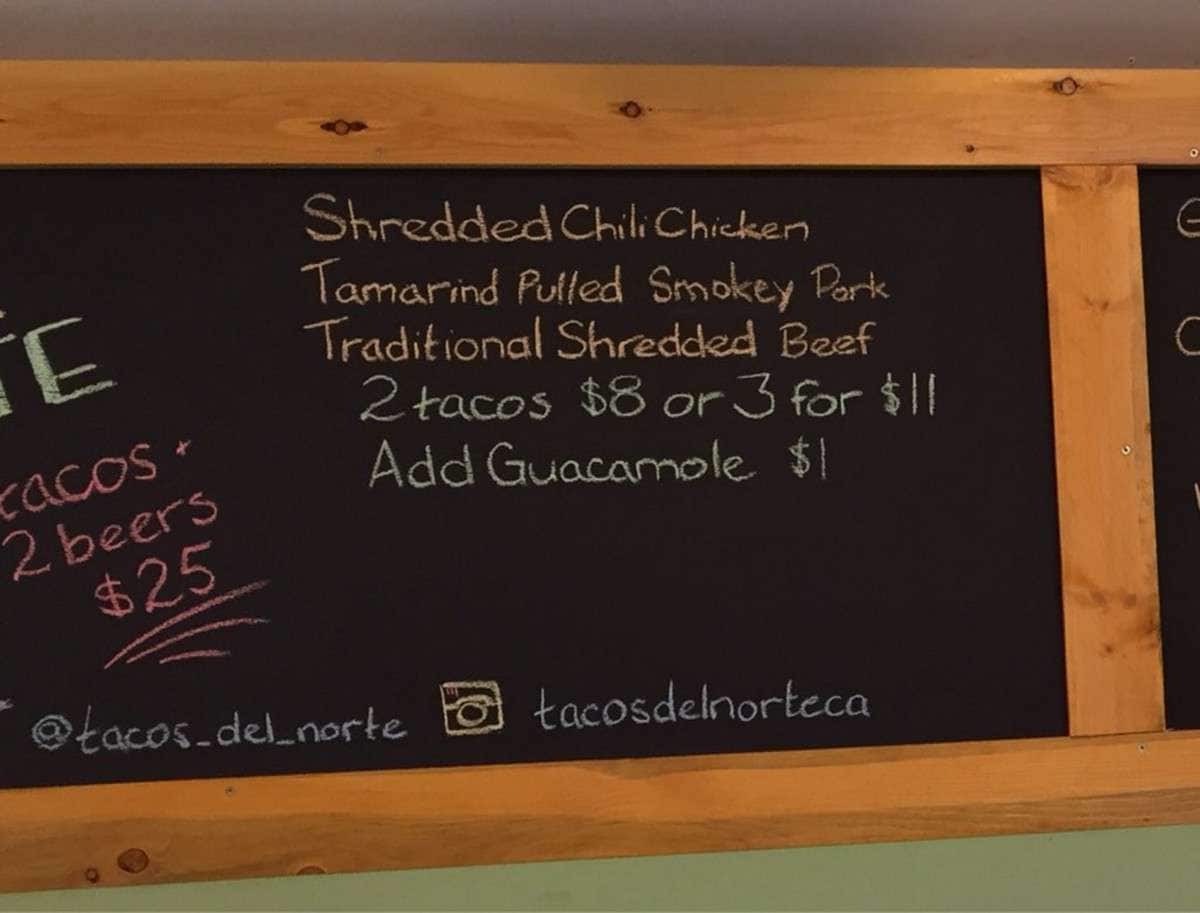 Shredded Chili Chicken
Tamarind Pulled Smokey Pork
Traditional Shredded Beef
2 tacos $8 or 3 for $11
Add Guacamole $1
TE
tacos +
2 beers
$25
@tacos_del_norte
tacosdelnorteca